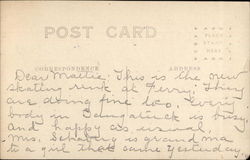 POST CARD
PLACE
STAMP
HERE
CORRESPONDENCE
ADDRESS
Dear Mattie, This is the new
skating rink at Ferry. They
are doing fine too. Every
body in Saugatuck is busy
and happy as usual.
Mrs. is grand ma
to a girl that came yesterday.